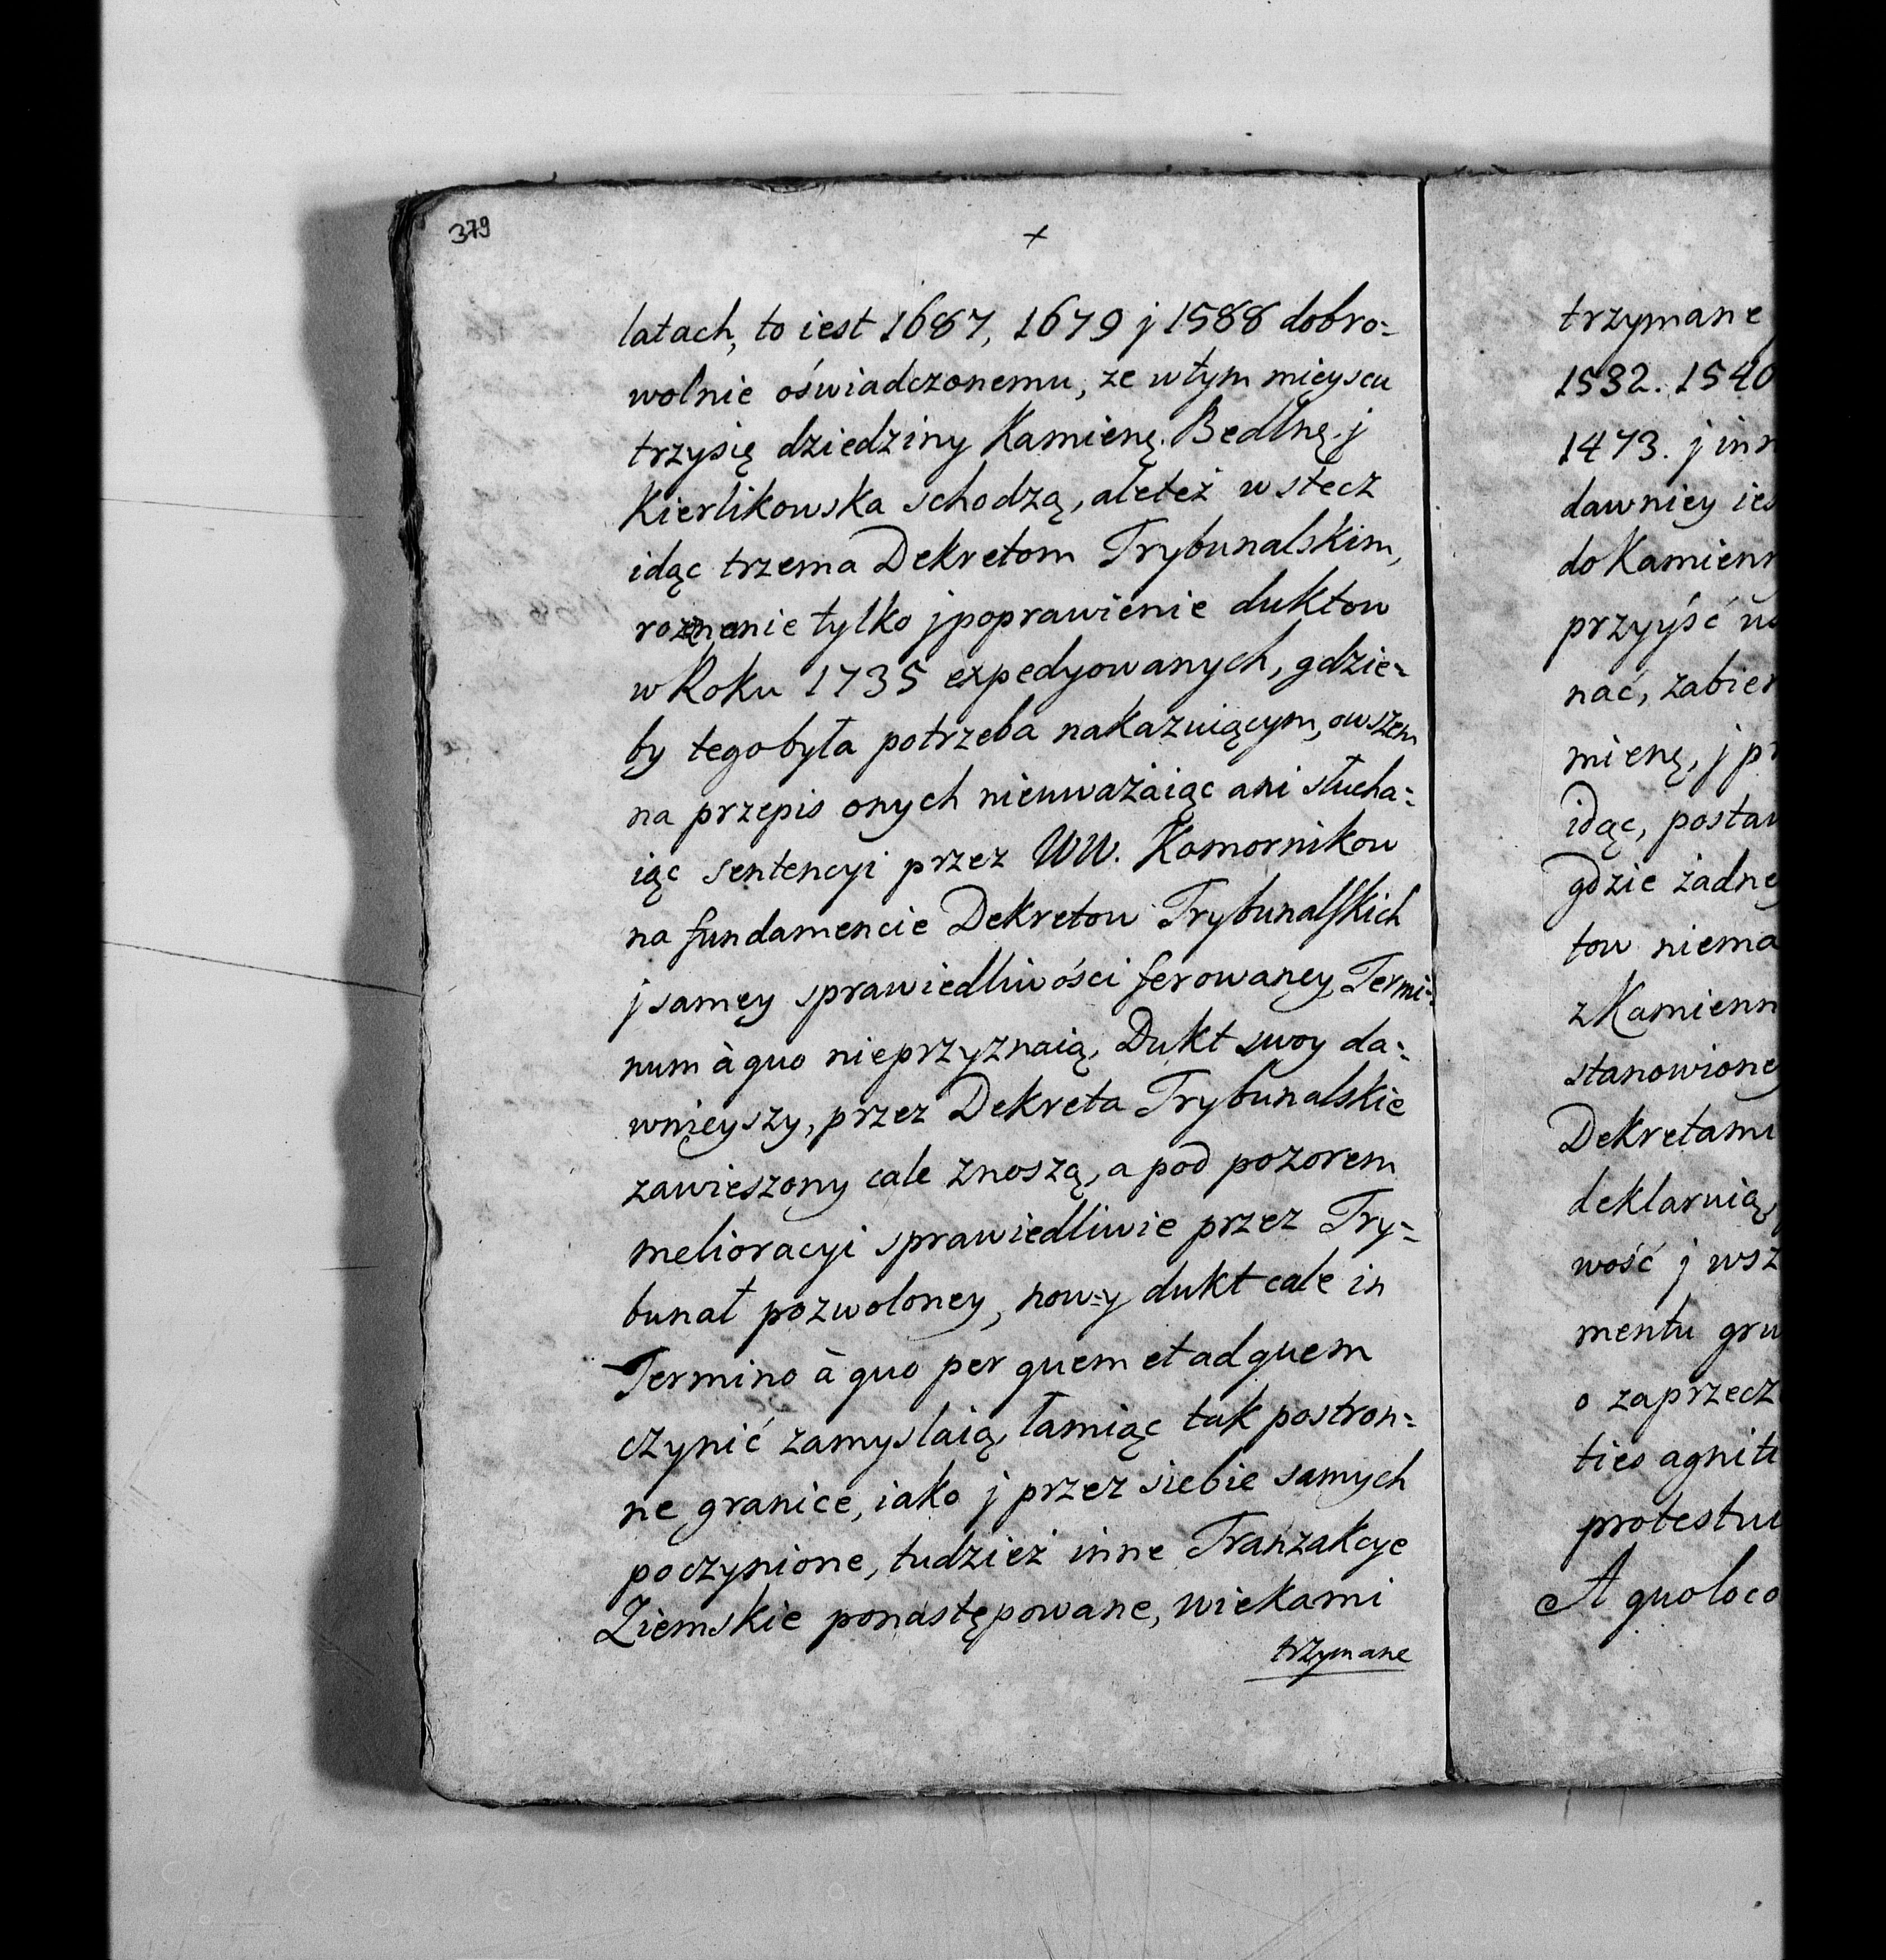 379
+
latach, to iest 1687, 1679 j 1588 dobro=
wolnie oświadczonemu, ze wtym mieyscu
trzysię dziedziny Kamienę. Bedlnę j
Kierlikowska schodzą, aleteż wstecz
idąc trzema Dekretom Trybunalskim,
tylko jpoprawienie duktow
w Roku 1735 expedyowanych, gdzie=
by tegobyła potrzeba nakazuiącym, owszem
na przepis onych nieuważaiąc ani słucha=
iąc sentencyi przez WW. Komornikow
na fundamencie Dekretow Trybunalskich
jsamey sprawiedliwości ferowaney, Termi=
num à quo nieprzyznaią, Dukt swoy da=
wnieyszy, przez Dekreta Trybunalskie
zawieszony cale znoszą, a pod pozorem
melioracyi sprawiedliwie przez Try=
bunał pozwoloney, nowy dukt cale in
Termino à quo per quem et ad quem
czynić zamyslaią, łamiąc tak postron=
ne granice, iako j przez siebie samych
poczynione, tudzież inne Tranzakcye
Ziemskie ponastępowane, wiekami
trzymane
trzymane
1532. 1540
1473. j inn
dawniey ies
do Kamienn
przyyść
nać, zabier
mienę, j pr
idąc, postaw
gdzie żadney
tow niema
z Kamienn
stanowioney
Dekretami
deklaruią,
wość j wsz
mentu gru
o zaprzecz
ties agnit
protestu
A quo loco